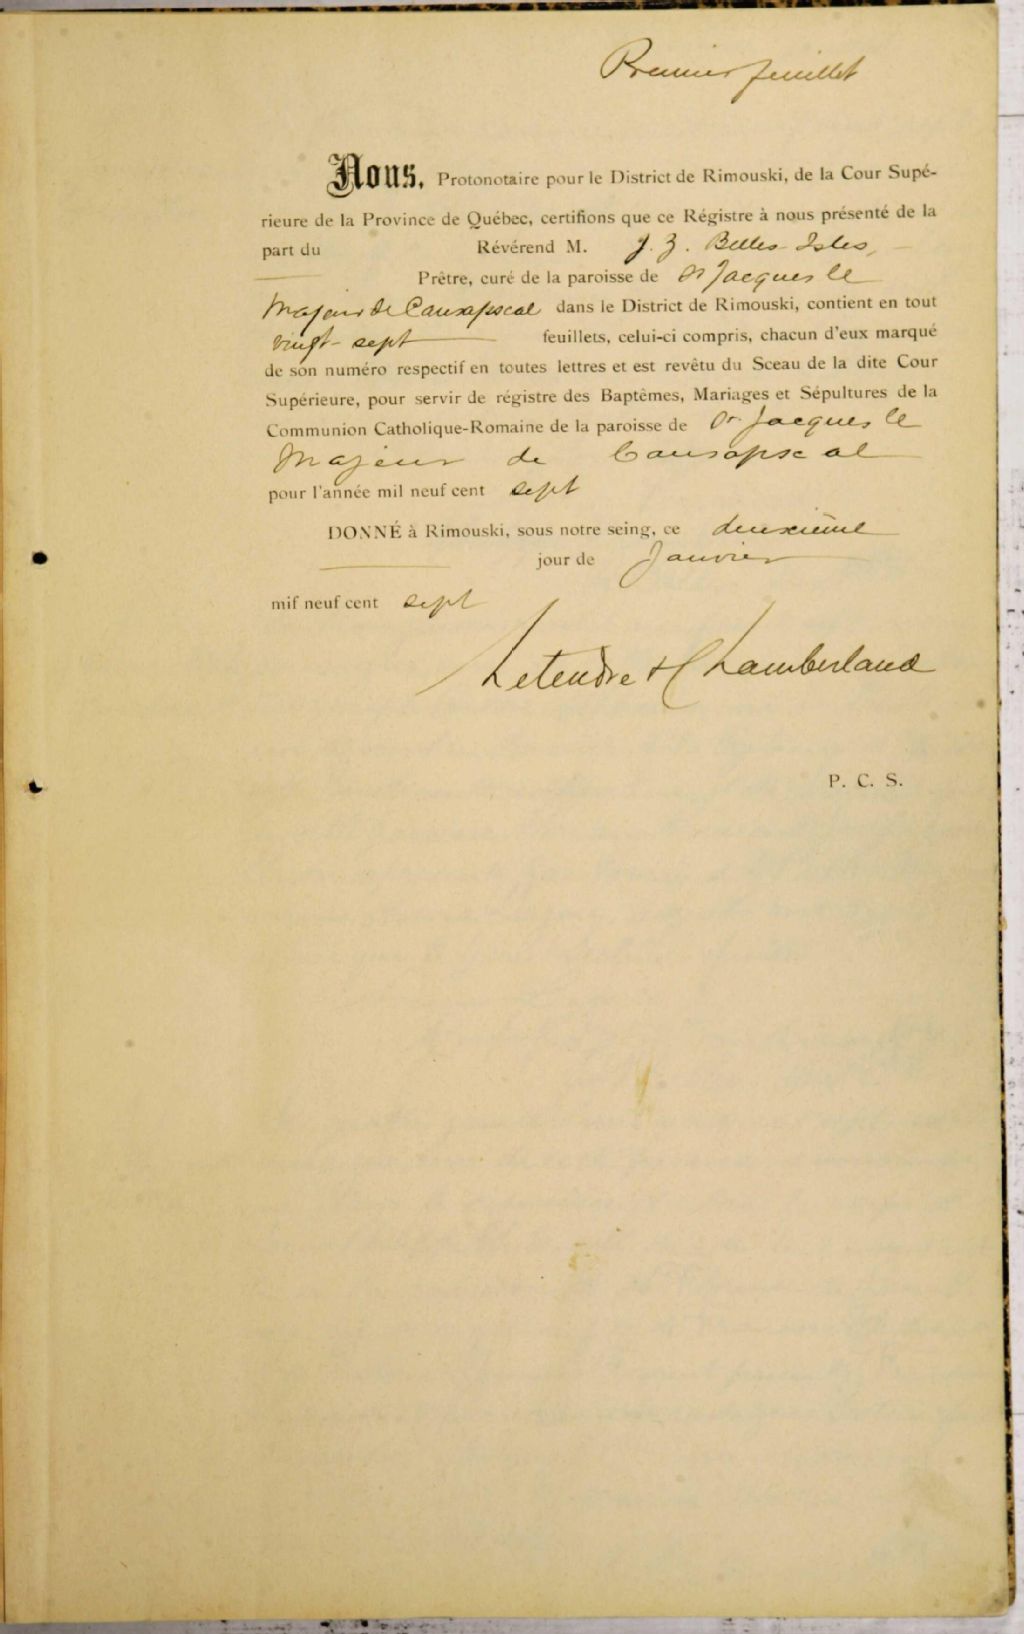 Premier feuillet
Nous, Protonotaire pour le District de Rimouski, de la Cour Supé-
rieure de la Province de Québec, certifions que ce Régistre à nous présenté de la
part du Révérend M. J. Z. Belles-Isles,
Prêtre, curé de la paroisse de St Jacques le
Majeur de Causapscal dans le District de Rimouski, contient en tout
vingt-sept feuillets, celui-ci compris, chacun d'eux marqué
de son numéro respectif en toutes lettres et est revêtu du Sceau de la dite Cour
Supérieure, pour servir de régistre des Baptêmes, Mariages et Sépultures de la
Communion Catholique-Romaine de la paroisse de St Jacques le
Majeur de Causapscal
pour l'année mil neuf cent sept
DONNÉ à Rimouski, sous notre seing, ce deuxième
jour de Janvier
mif neuf cent sept
Letendre & Chamberland
P. C. S.